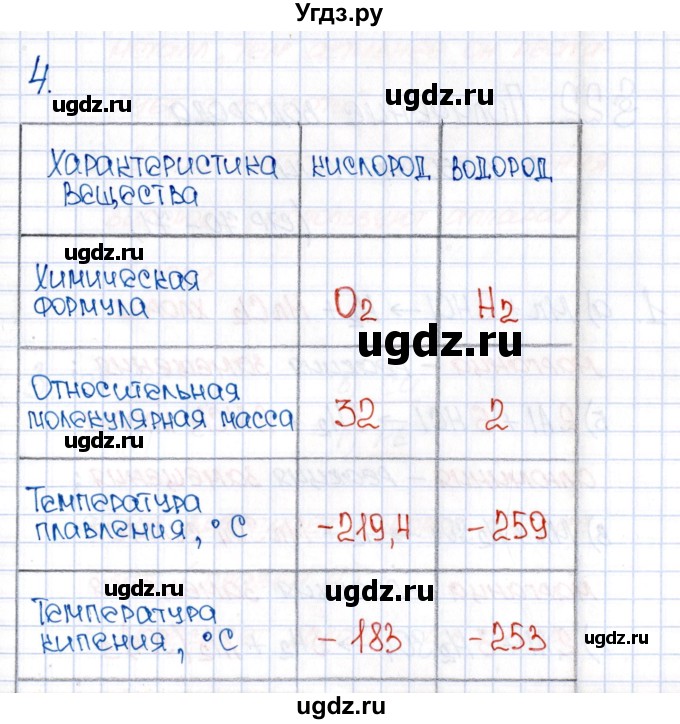 Угдз.ру
4.
ugdz.ru ugdz.ru
Характеристика кислород водород
вещества
ugdz.ru
Химическая
формула O2 H2
ugdz.ru
Относительная
молекулярная масса 32 2
ugdz.ru
Температура
плавления, °C -219,4 -259
ugdz.ru ugdz.ru
Температура
кипения, °C -183 -253 ugdz.ru
ugdz.ru